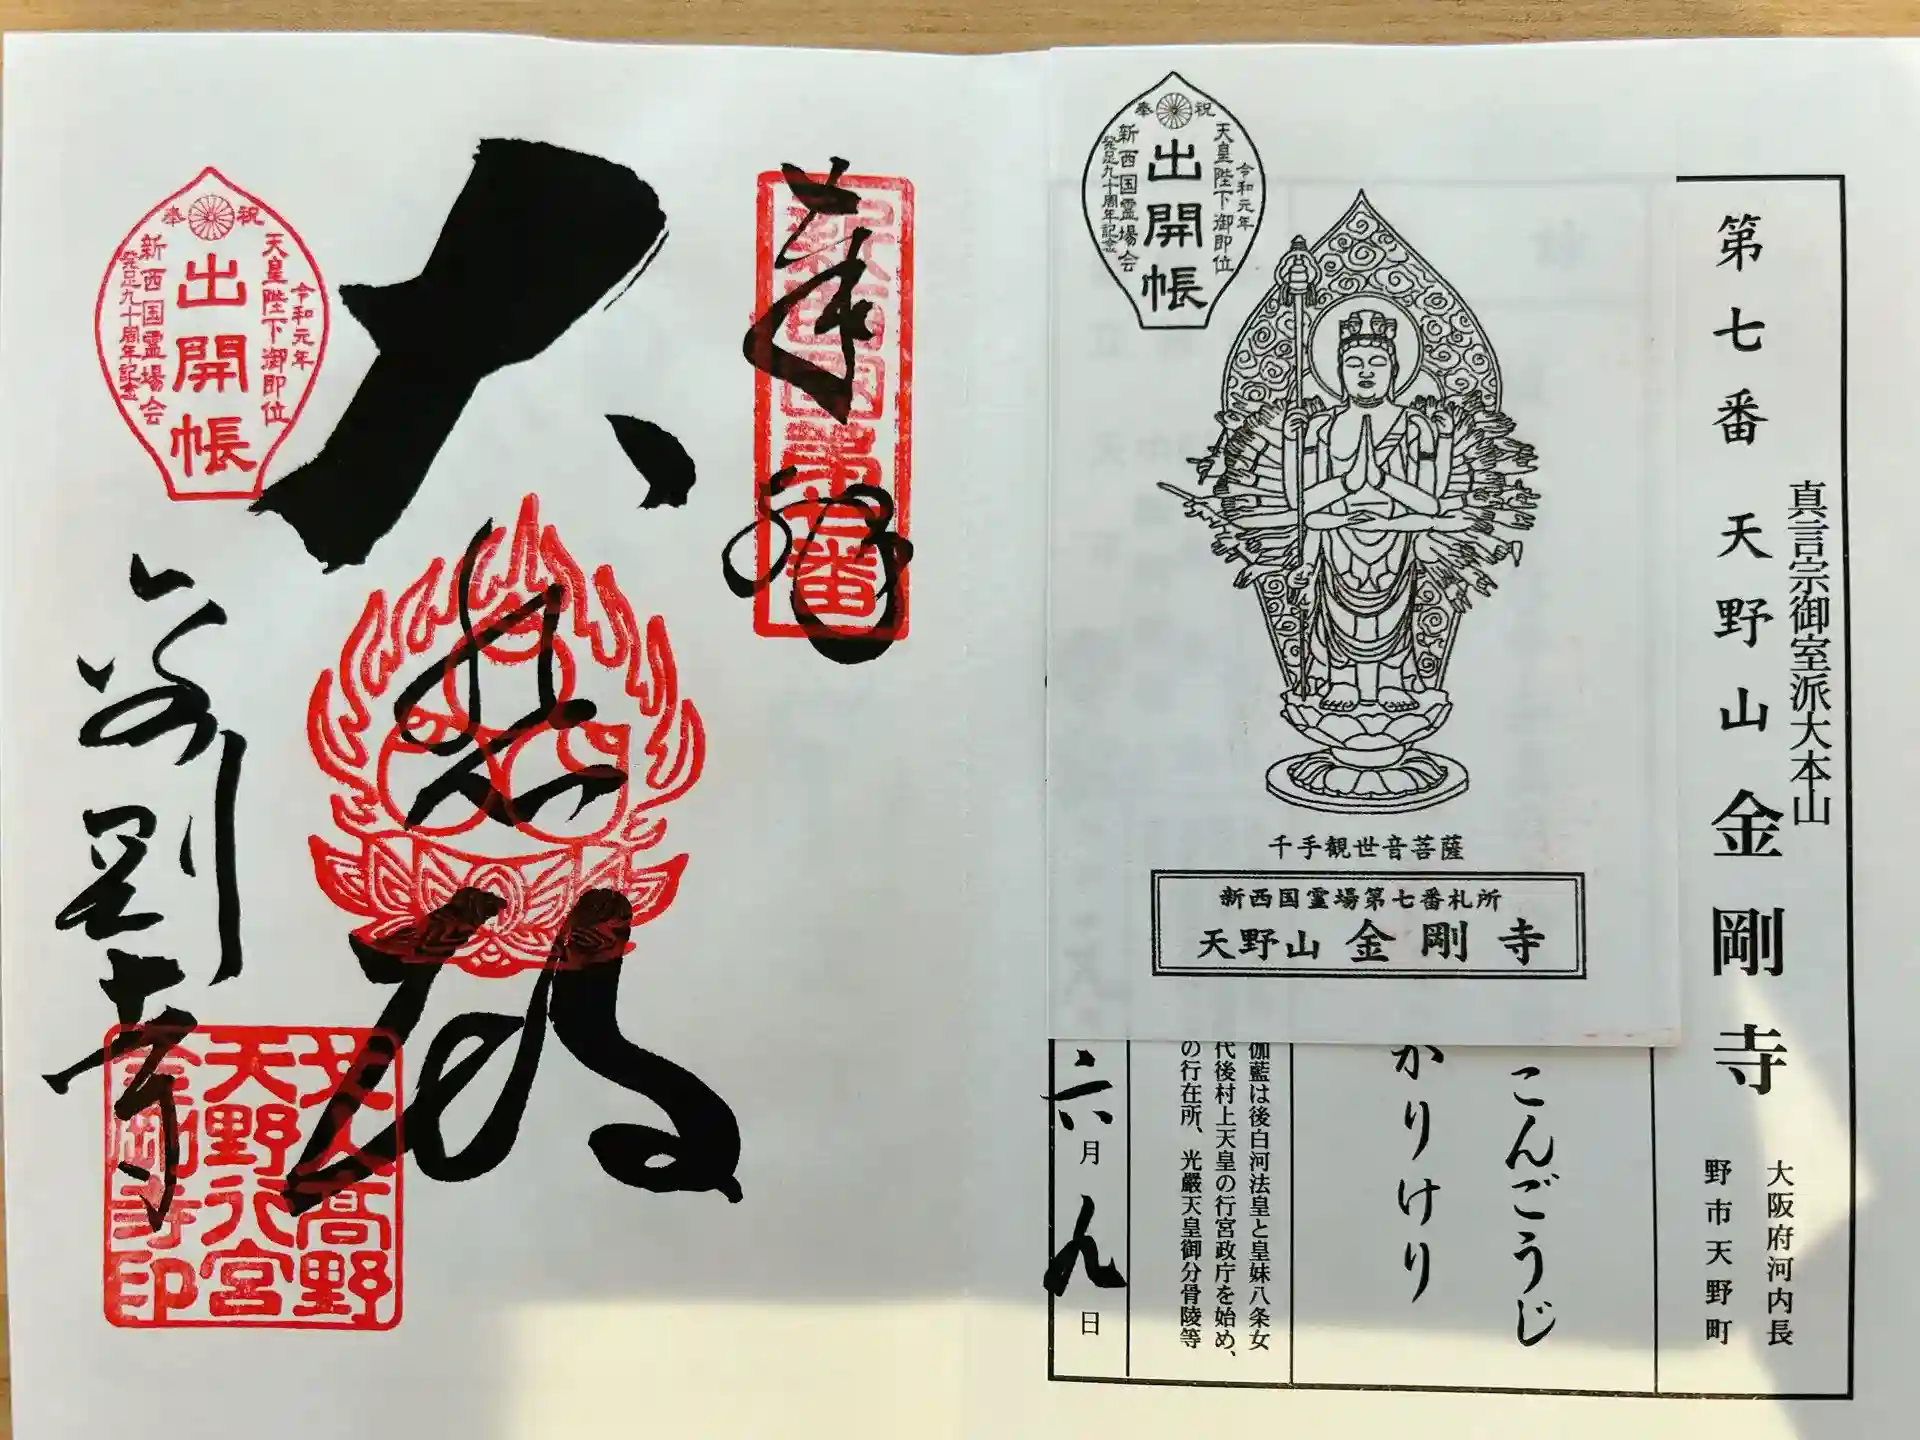 第七番 天野山 金剛寺
真言宗御室派大本山
大阪府河内長
野市天野町
こんごうじ
かりけり
伽藍は後白河法皇と皇妹八条女
代後村上天皇の行宮政庁を始め、
の行在所、光嚴天皇御分骨陵等
六月九日
奉祝
令和元年
天皇陛下御即位
出開帳
新西国霊場会
発足九十周年記念
千手観世音菩薩
新西国霊場第七番札所
天野山 金剛寺
奉拝
新西國第七番
大悲殿
金剛寺
奉祝
令和元年
天皇陛下御即位
出開帳
新西国霊場会
発足九十周年記念
女人高野
天野行宮
金剛寺印